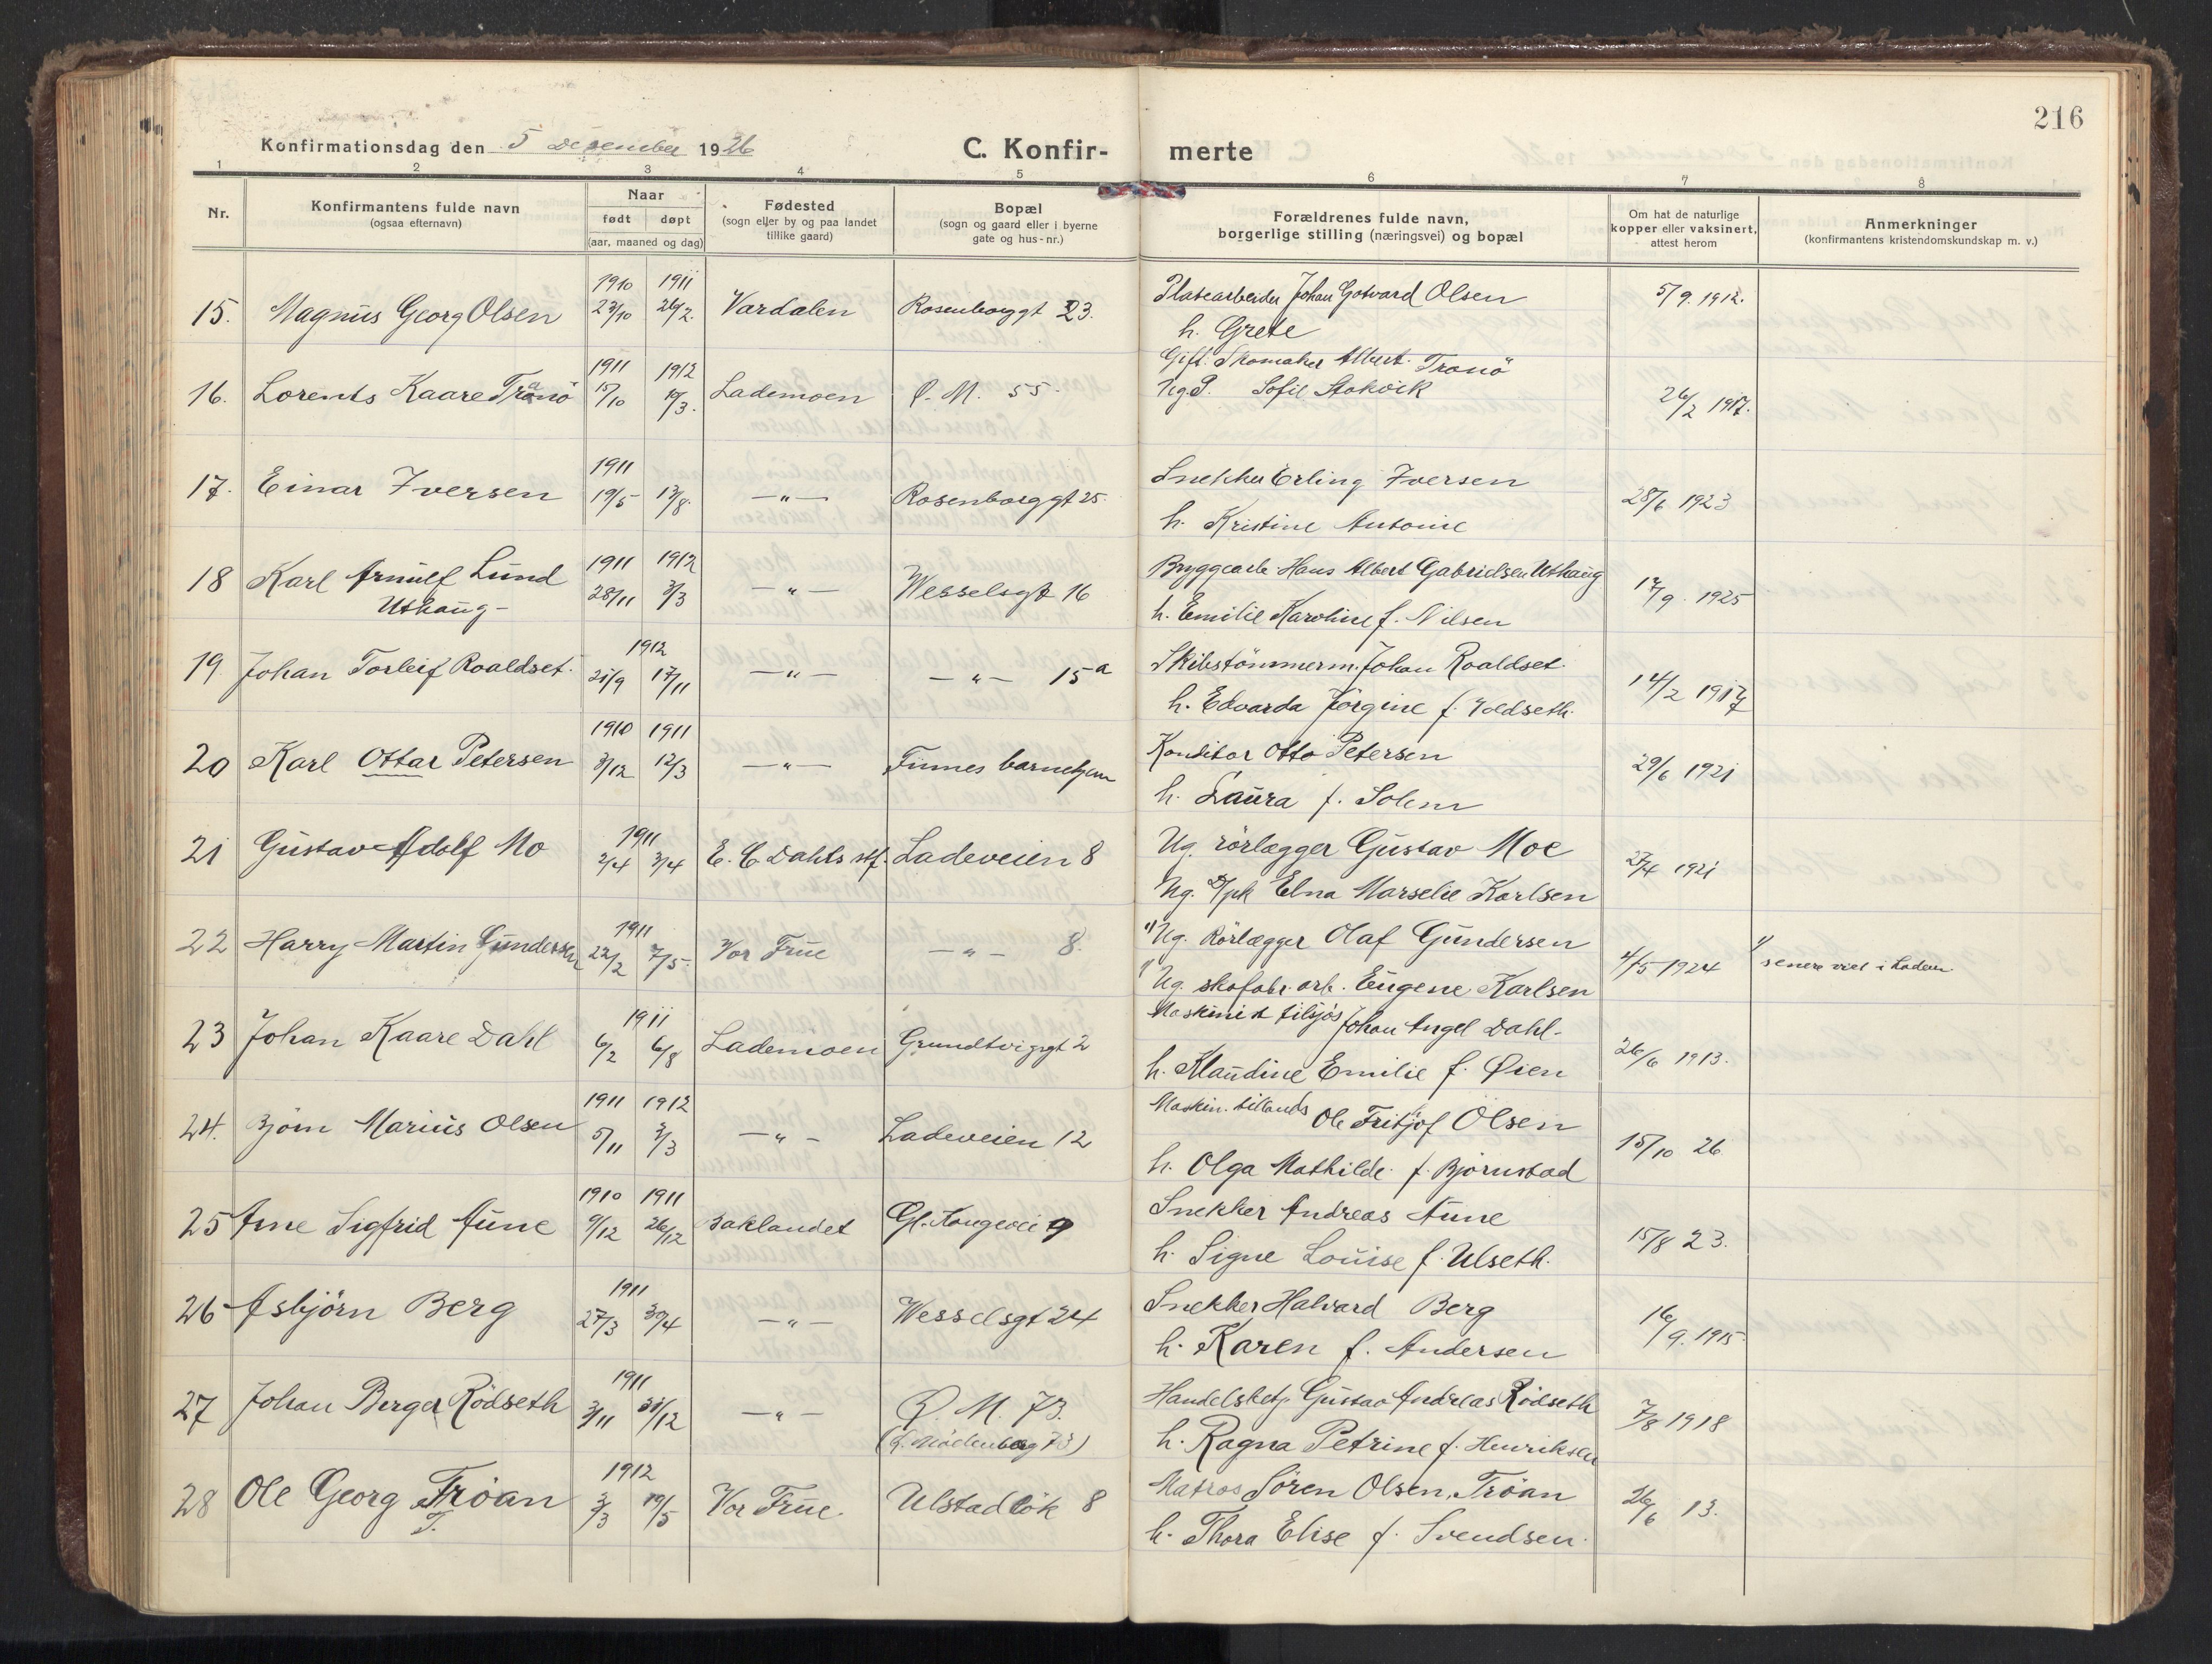 216
Konfirmationsdag den 5 December 1926
C. Konfir- merte
1 2 3 4 5 6 7 8
Nr.
Konfirmantens fulde navn
(ogsaa efternavn)
Naar
født døpt
(aar, maaned og dag)
Fødested
(sogn eller by og paa landet
tillike gaard)
Bopæl
(sogn og gaard eller i byerne
gate og hus-nr.)
Forældrenes fulde navn,
borgerlige stilling (næringsvei) og bopæl
Om hat de naturlige
kopper eller vaksinert,
attest herom
Anmerkninger
(konfirmantens kristendomskundskap m. v.)
1910 1911
15. Magnus Georg Olsen 23/10 26/2. Vardalen Rosenborggt 23. Platearbeider Johan Gotvard Olsen 5/9. 1912.
h. Grete
1911 1912 Gift. Skomaker Albert Tronö
16. Lorents Kaare Tronö 15/10 17/3. Lademoen Ø. M. 55. Ug. P. Sofie Stokvik 26/2 1917.
1911
17. Einar Iversen 19/5 13/8. —"— Rosenborggt 25. Snekker Erling Iversen 28/6 1923
h. Kristine Antonie
1911 1912
18 Karl Arnulf Lund 28/11 3/3 —"— Wesselsgt 16 Bryggearb. Hans Albert Gabrielsen Uthaug 17/9. 1925
Uthaug - h. Emilie Karoline f. Nilsen
1912
19 Johan Torleif Roaldset. 21/9 17/11 —"— —"— 15 a Skibstömmerm. Johan Roaldset. 14/2 1917
h. Edvarda Jörgine f. Voldseth.
1910 1911
20 Karl Ottar Petersen 3/12 12/3 —"— Finnes barnehjem Konditor Otto Petersen 29/6 1921
h. Laura f. Solem
1911
21 Gustav Adolf Mo 2/4 3/4 E. C Dahls stf. Ladeveien 8 Ug. rörlægger Gustav Moe 27/4 1921
Ug. Elna Marselie Karlsen
1911
22 Harry Martin Gundersen 22/2 7/5. Vor Frue —"— 8. 1) Ug. Rörlægger Olaf Gundersen 4/5 1924 1) senere viet i Ladem.
Ug. skofabr. arb. Eugene Karlsen
1911
23 Johan Kaare Dahl 6/2 6/8 Lademoen Grundtvigsgt 2 Maskinist tilsjøs Johan Angel Dahl. 26/6 1913.
h. Klaudine Emilie f. Øien
1911 1912
24. Bjørn Marius Olsen 5/11 3/3 —"— Ladeveien 12 Maskin. tillands Ole Fritjof Olsen 15/10 26
h. Olga Mathilde f. Bjørnstad
1910 1911
25 Arne Sigfrid Aune 9/12 26/12 Baklandet Gl. Kongevei 9 Snekker Andreas Aune 15/8 23.
h. Signe Louise f. Ulseth.
1911
26 Asbjörn Berg 27/3 30/4 —"— Wesselsgt 24 Snekker Halvard Berg 16/9. 1915
h. Karen f. Andersen
1911
27 Johan Berger Rödseth 3/11 31/12 —"— Ø. M. 73. Handelsbetj. Gustav Andreas Rödseth 7/8 1918
(Ø. Møllenberg 73) h. Ragna Petrine f. Henriksen
1912
28 Ole Georg Tröan 3/3 19/5 Vor Frue. Ulstadlök 8 Matros Sören Olsen Tröan 26/6 13.
T. h. Thora Elise f. Svendsen.